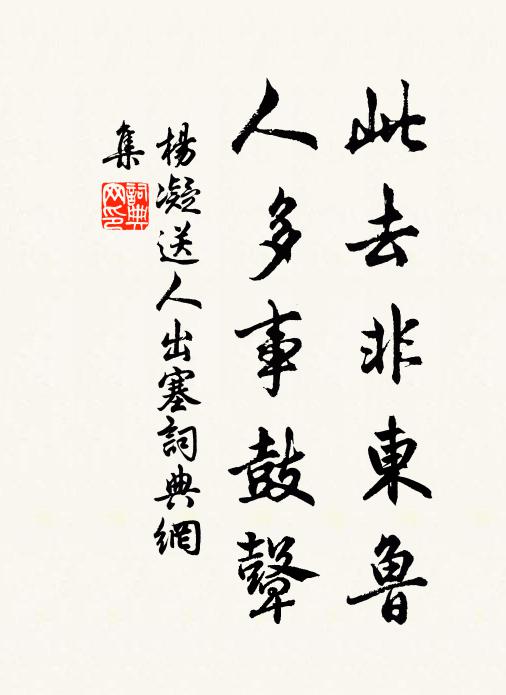 此去非東魯
人多事鼓鼙
楊凝送人出塞詞典網
集
詞典
网印